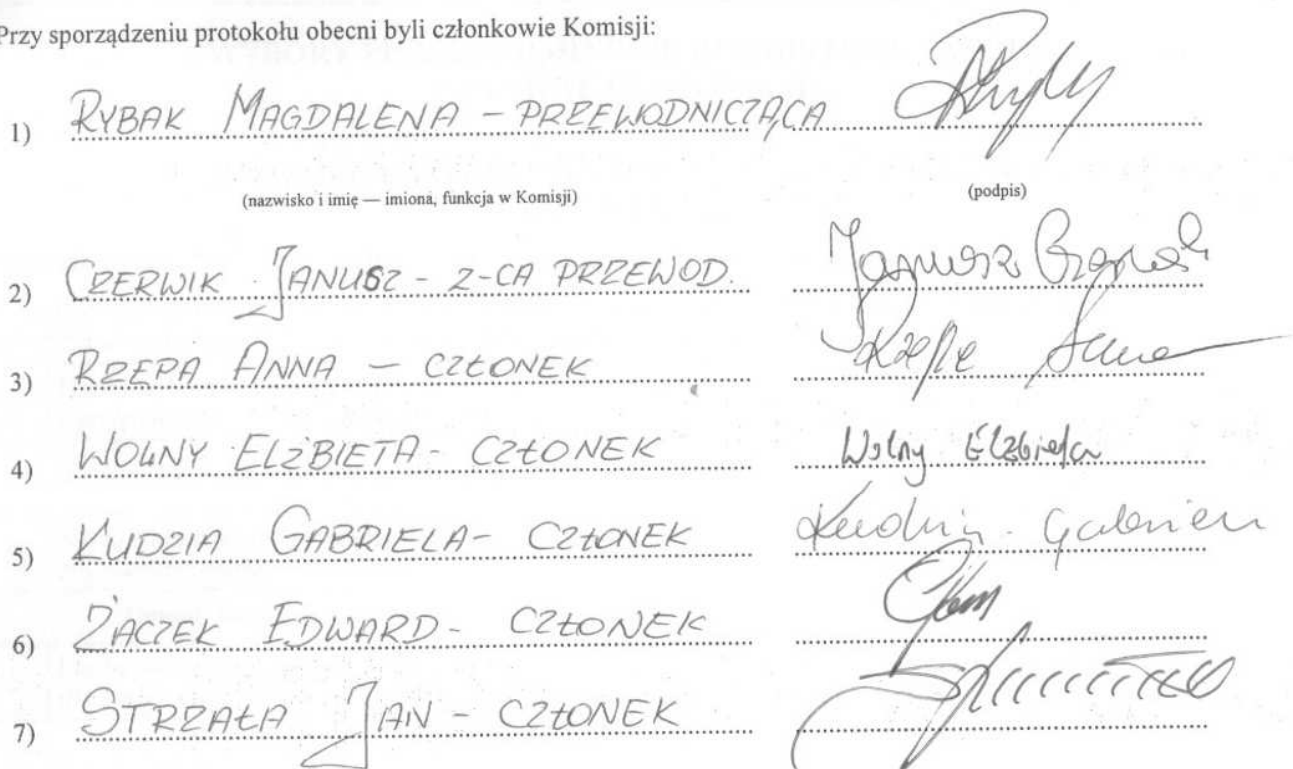 Przy sporządzeniu protokołu obecni byli członkowie Komisji:
1) RYBAK MAGDALENA - PRZEWODNICZĄCA
(nazwisko i imię — imiona, funkcja w Komisji) (podpis)
2) CZERWIK JANUSZ - Z-CA PRZEWOD. Janusz
3) RZEPA ANNA - CZŁONEK
4) WOLNY ELŻBIETA - CZŁONEK Wolny Elżbieta
5) KUDZIA GABRIELA - CZŁONEK
6) ŻACZEK EDWARD - CZŁONEK
7) STRZAŁA JAN - CZŁONEK